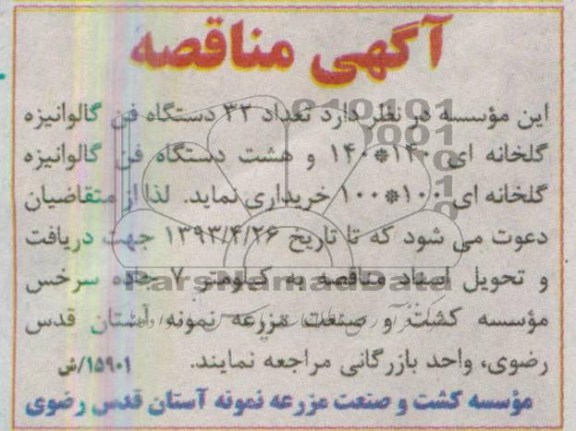 آگهی مناقصه
این مؤسسه در نظر دارد تعداد ۳۲ دستگاه فن گالوانیزه
گلخانه ای ۱۴۰*۱۴۰ و هشت دستگاه فن گالوانیزه
گلخانه ای ۱۰۰*۱۰۰ خریداری نماید. لذا از متقاضیان
دعوت می شود که تا تاریخ ۱۳۹۳/۴/۲۶ جهت دریافت
و تحویل اسناد مناقصه به کیلومتر ۷ جاده سرخس
ParsNamadData
مؤسسه کشت و صنعت مزرعه نمونه آستان قدس
رضوی، واحد بازرگانی مراجعه نمایند.
۱۵۹۰۱/ش
مؤسسه کشت و صنعت مزرعه نمونه آستان قدس رضوی